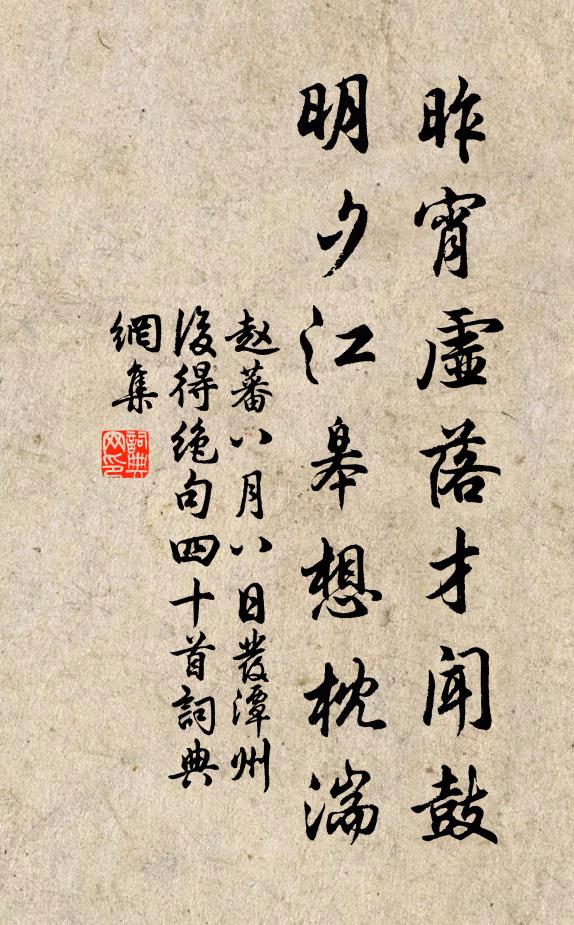 昨宵虛落才聞鼓
明夕江皋想枕湍
赵蕃八月八日發潭州
後得絶句四十首詞典
網集
詞典网印